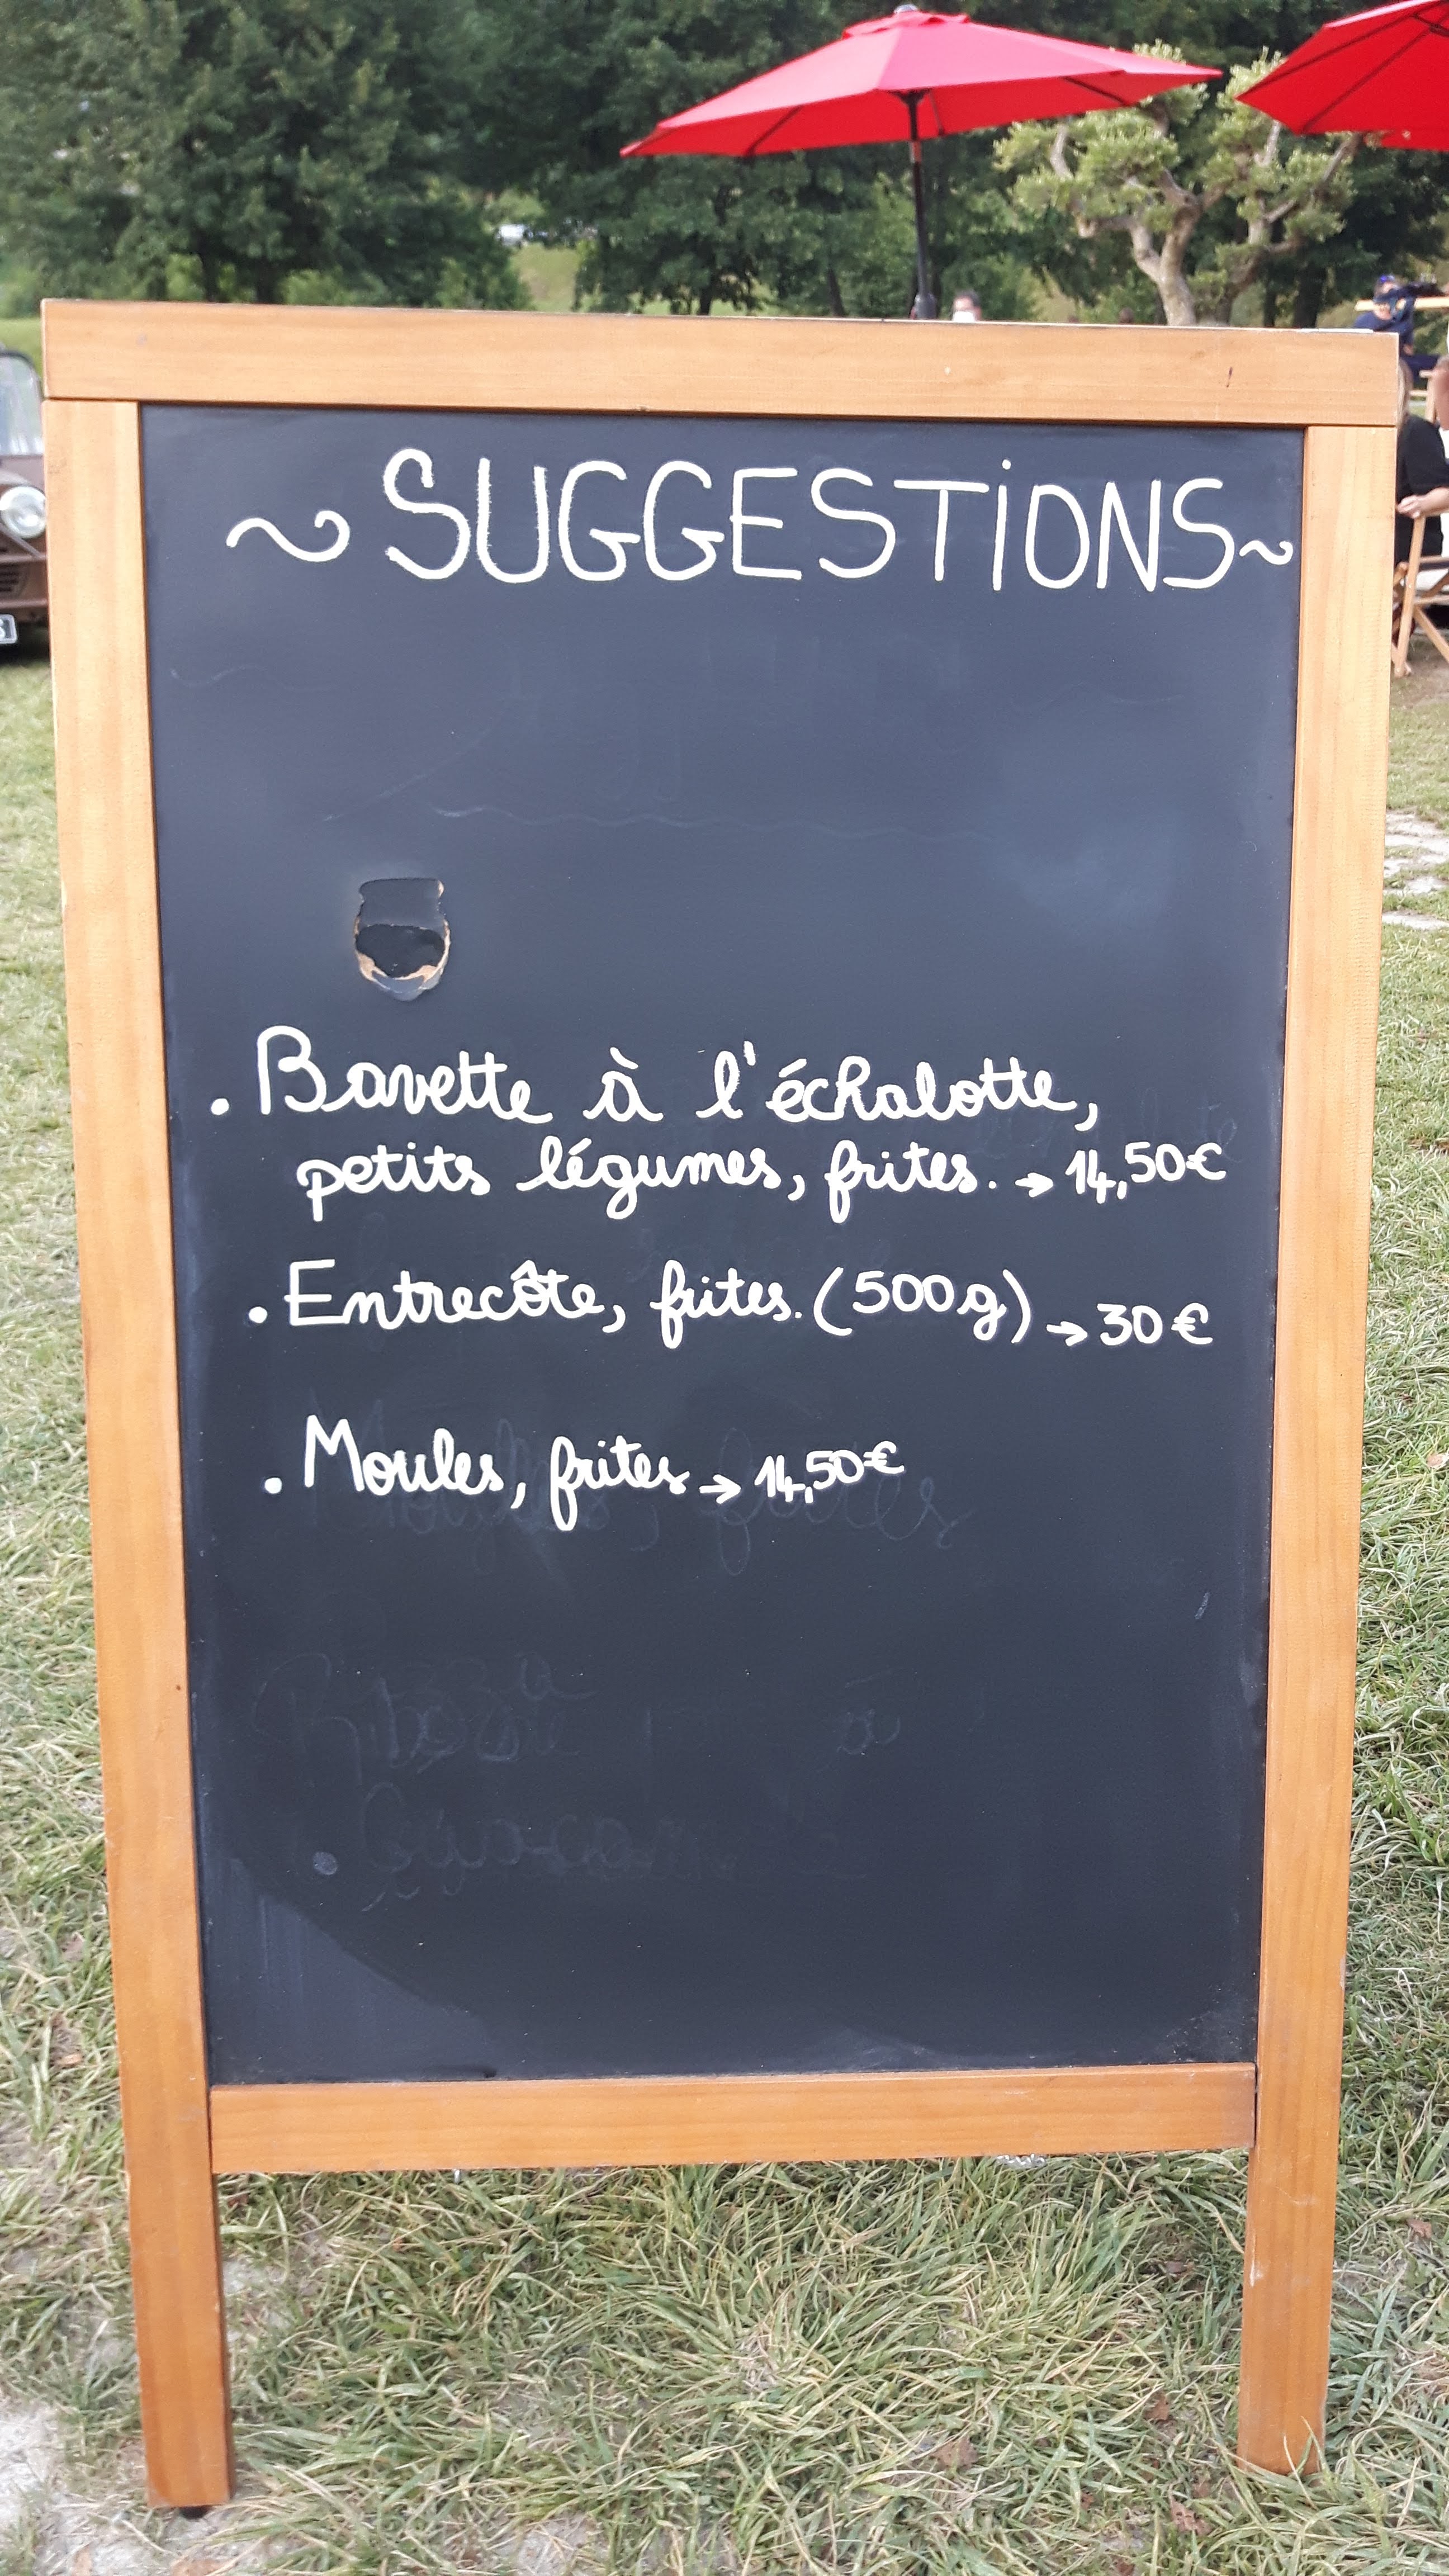 ~ SUGGESTIONS ~
. Bavette à l'échalotte,
petits légumes, frites. → 14,50€
. Entrecôte, frites. (500g) → 30€
. Moules, frites → 14,50€